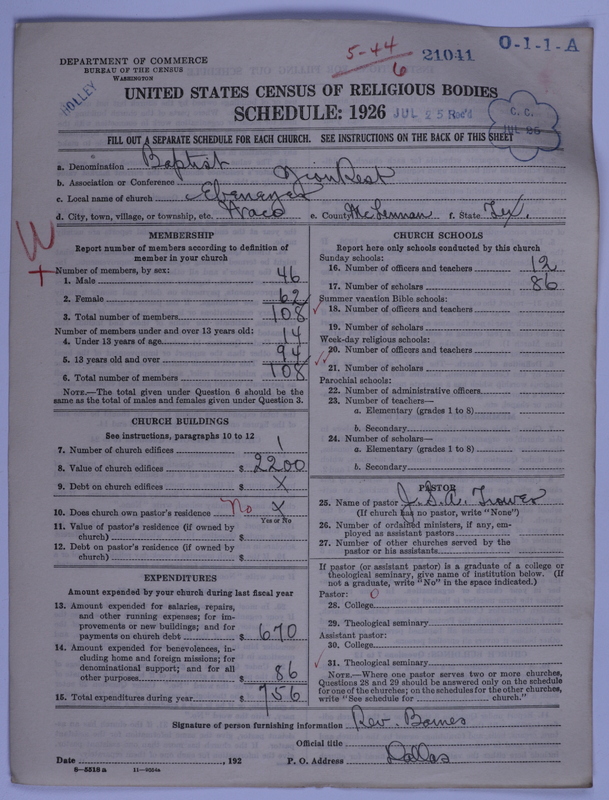 5-44
6
21041
O-1-1-A
DEPARTMENT OF COMMERCE
BUREAU OF THE CENSUS
WASHINGTON
HOLLEY
UNITED STATES CENSUS OF RELIGIOUS BODIES
SCHEDULE: 1926
JUL 25 Rec'd
C. C.
JUL 26
FILL OUT A SEPARATE SCHEDULE FOR EACH CHURCH. SEE INSTRUCTIONS ON THE BACK OF THIS SHEET
a. Denomination Baptist
b. Association or Conference Zion Rest
c. Local name of church Ebenezer
d. City, town, village, or township, etc. Waco e. County McLennan f. State Tex.
W
+
MEMBERSHIP
Report number of members according to definition of
member in your church
Number of members, by sex:
1. Male 46
2. Female 62
3. Total number of members 108
Number of members under and over 13 years old:
4. Under 13 years of age 14
5. 13 years old and over 94
6. Total number of members 108
NOTE.—The total given under Question 6 should be the
same as the total of males and females given under Question 3.
CHURCH BUILDINGS
See instructions, paragraphs 10 to 12
7. Number of church edifices 1
8. Value of church edifices $ 2200
9. Debt on church edifices $ X
10. Does church own pastor's residence No X
Yes or No
11. Value of pastor's residence (if owned by
church) $
12. Debt on pastor's residence (if owned by
church) $
EXPENDITURES
Amount expended by your church during last fiscal year
13. Amount expended for salaries, repairs,
and other running expenses; for im-
provements or new buildings; and for
payments on church debt $ 670
14. Amount expended for benevolences, in-
cluding home and foreign missions; for
denominational support; and for all
other purposes $ 86
15. Total expenditures during year $ 756
CHURCH SCHOOLS
Report here only schools conducted by this church
Sunday schools:
16. Number of officers and teachers 12
17. Number of scholars 86
Summer vacation Bible schools:
18. Number of officers and teachers
19. Number of scholars
Week-day religious schools:
20. Number of officers and teachers
21. Number of scholars
Parochial schools:
22. Number of administrative officers
23. Number of teachers—
a. Elementary (grades 1 to 8)
b. Secondary
24. Number of scholars—
a. Elementary (grades 1 to 8)
b. Secondary
PASTOR
25. Name of pastor J. S. A. Trower
(If church has no pastor, write "None")
26. Number of ordained ministers, if any, em-
ployed as assistant pastors
27. Number of other churches served by the
pastor or his assistants
If pastor (or assistant pastor) is a graduate of a college or
theological seminary, give name of institution below. (If
not a graduate, write "No" in the space indicated.)
Pastor: O
28. College
29. Theological seminary
Assistant pastor:
30. College
31. Theological seminary
NOTE.—Where one pastor serves two or more churches,
Questions 28 and 29 should be answered only on the schedule
for one of the churches; on the schedules for the other churches,
write "See schedule for church."
Signature of person furnishing information Rev. Barnes
Official title
Date , 192 P. O. Address Dallas
8-5518 a 11-9554a